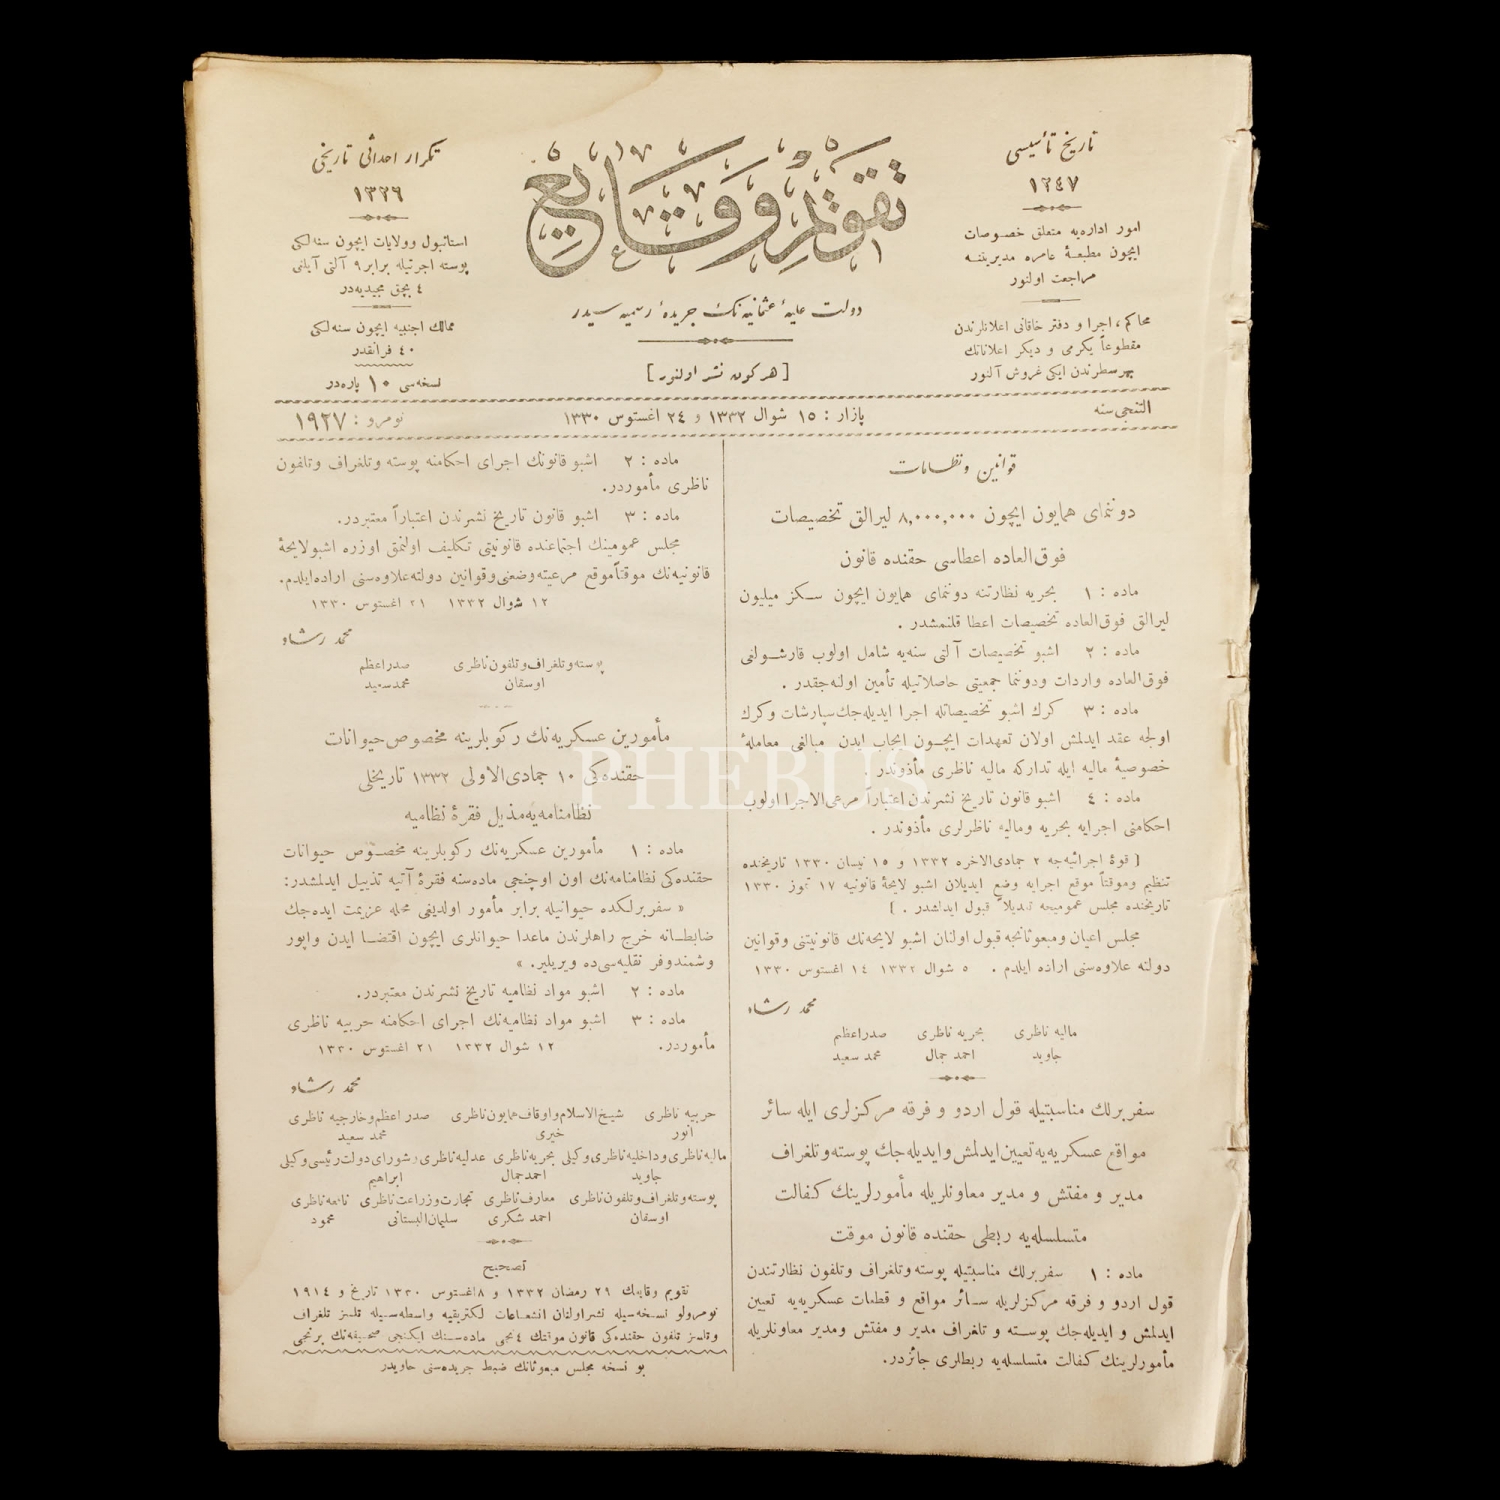 تاریخ تأسیسی
١٢٤٧
امور اداره‌یه متعلق خصوصات
ایچون مطبعهٔ عامره مدیریتنه
مراجعت اولنور
محاكم ، اجرا و دفتر خاقانی اعلانلرندن
مقطوعاً یكرمی و دیكر اعلاناتك
بهر سطرندن ایكی غروش آلنور
تقویم وقایع
دولت علیهٔ عثمانیه‌نك جریدهٔ رسمیه سیدر
[ هركون نشر اولنور ]
تكرار احداثی تاریخی
١٣٢٦
استانبول وولایات ایچون سنه‌لكی
پوسته اجرتیله برابر ٩ آلتی آیلغی
٤ بچق مجیدیه‌در
ممالك اجنبیه ایچون سنه‌لكی
٤٠ فرانقدر
نسخه‌سی ١٠ پاره‌در
التنجی سنه
پازار : ١٥ شوال ١٣٣٢ و ٢٤ اغستوس ١٣٣٠
نومرو : ١٩٢٧
قوانین ونظامات
دوننمای همایون ایچون ٨,٠٠٠,٠٠٠ لیرالق تخصیصات
فوق‌العاده اعطاسی حقنده قانون
ماده : ١ بحریه نظارتنه دوننمای همایون ایچون سكز میلیون
لیرالق فوق‌العاده تخصیصات اعطا قلنمشدر .
ماده : ٢ اشبو تخصیصات آلتی سنه‌یه شامل اولوب قارشولغی
فوق‌العاده واردات ودوننما جمعیتی حاصلاتیله تأمین اولنه‌جقدر .
ماده : ٣ كرك اشبو تخصیصاتله اجرا ایدیله‌جك سپارشات وكرك
اولجه عقد ایدلمش اولان تعهدات ایچون ایجاب ایدن مبالغی معاملهٔ
خصوصیهٔ مالیه ایله تداركه مالیه ناظری مأذوندر .
ماده : ٤ اشبو قانون تاریخ نشرندن اعتباراً مرعی‌الاجرا اولوب
احكامنی اجرایه بحریه ومالیه ناظرلری مأذوندر .
[ قوهٔ اجرائیه‌جه ٢ جمادی‌الاخره ١٣٣٢ و ١٥ نیسان ١٣٣٠ تاریخنده
تنظیم وموقتاً موقع اجرایه وضع ایدیلان اشبو لایحهٔ قانونیه ١٧ تموز ١٣٣٠
تاریخنده مجلس عمومیجه تعدیلاً قبول ایدلشدر . ]
مجلس اعیان ومبعوثانجه قبول اولنان اشبو لایحه‌نك قانونیتنی وقوانین
دولته علاوه‌سنی اراده ایلدم . ٥ شوال ١٣٣٢ ١٤ اغستوس ١٣٣٠
محمد رشاد
مالیه ناظری بحریه ناظری صدراعظم
جاوید احمد جمال محمد سعید
سفربرلك مناسبتیله قول اردو و فرقه مركزلری ایله سائر
مواقع عسكریه‌یه تعیین ایدلمش وایدیله‌جك پوسته وتلغراف
مدیر و مفتش و مدیر معاونلریله مأمورلرینك كفالت
متسلسله‌یه ربطی حقنده قانون موقت
ماده : ١ سفربرلك مناسبتیله پوسته وتلغراف وتلفون نظارتندن
قول اردو و فرقه مركزلریله سائر مواقع و قطعات عسكریه‌یه تعیین
ایدلمش و ایدیله‌جك پوسته و تلغراف مدیر و مفتش ومدیر معاونلریله
مأمورلرینك كفالت متسلسله‌یه ربطلری جائزدر.
ماده : ٢ اشبو قانونك اجرای احكامنه پوسته وتلغراف وتلفون
ناظری مأموردر.
ماده : ٣ اشبو قانون تاریخ نشرندن اعتباراً معتبردر.
مجلس عمومینك اجتماعنده قانونیتی تكلیف اولنمق اوزره اشبو لایحهٔ
قانونیه‌نك موقتاً موقع مرعیته وضعنی وقوانین دولته علاوه‌سنی اراده ایلدم.
١٢ شوال ١٣٣٢ ٢١ اغستوس ١٣٣٠
محمد رشاد
پوسته وتلغراف وتلفون ناظری صدراعظم
اوسقان محمد سعید
مأمورین عسكریه‌نك ركوبلرینه مخصوص حیوانات
حقنده‌كی ١٠ جمادی‌الاولی ١٣٣٢ تاریخلی
نظامنامه‌یه مذیل فقرهٔ نظامیه
ماده : ١ مأمورین عسكریه‌نك ركوبلرینه مخصوص حیوانات
حقنده‌كی نظامنامه‌نك اون اوچنجی ماده‌سنه فقرهٔ آتیه تذییل ایدلمشدر:
« سفربرلكده حیوانیله برابر مأمور اولدیغی محله عزیمت ایده‌جك
ضابطانه خرج راهلرندن ماعدا حیوانلری ایچون اقتضا ایدن واپور
وشمندوفر نقلیه‌سی ده ویریلیر. »
ماده : ٢ اشبو مواد نظامیه تاریخ نشرندن معتبردر.
ماده : ٣ اشبو مواد نظامیه‌نك اجرای احكامنه حربیه ناظری
مأموردر. ١٢ شوال ١٣٣٢ ٢١ اغستوس ١٣٣٠
محمد رشاد
حربیه ناظری شیخ‌الاسلام واوقاف همایون ناظری صدراعظم وخارجیه ناظری
انور خیری محمد سعید
مالیه ناظری وداخلیه ناظری وكیلی بحریه ناظری عدلیه ناظری وشورای دولت رئیسی وكیلی
جاوید احمد جمال ابراهیم
پوسته وتلغراف وتلفون ناظری معارف ناظری تجارت وزراعت ناظری نافعه ناظری
اوسقان احمد شكری سلیمان البستانی محمود
تصحیح
تقویم وقایعك ٢٩ رمضان ١٣٣٢ و ٨ اغستوس ١٣٣٠ تاریخ و ١٩١٤
نومرولو نسخه‌سیله نشر اولنان انشعاعات الكتریقیه واسطه‌سیله تلسز تلغراف
وتلسز تلفون حقنده‌كی قانون موقتك ٤ نجی ماده‌سنك ایكنجی صحیفه‌نك برنجی
بو نسخه مجلس مبعوثانك ضبط جریده‌سنی حاویدر
PHEBUS